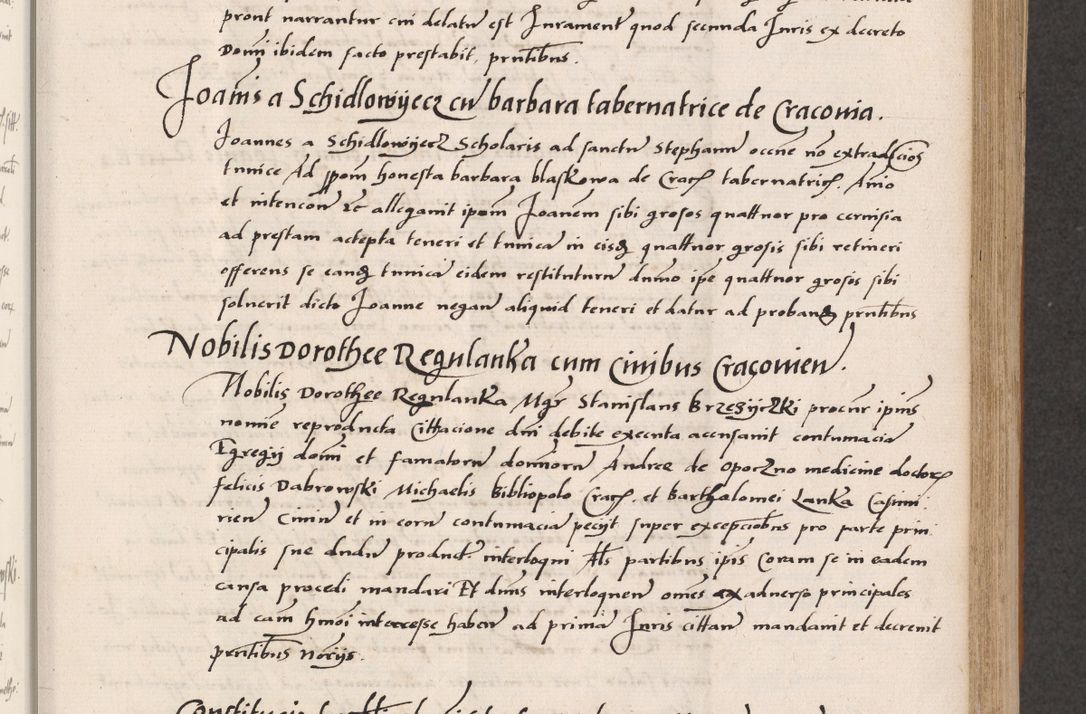 pront narrantur cui delatum est Jurament quod secunda Juris ex decreto
Domini ibidem facto prestabit, pntibus.
Joanis a Schidlowijecz cum barbara tabernatrice de Craconia.
Joannes a Schidlowijecz Scholaris ad sanctum Stephanum occne no extradcios
tunice Ad ppom honesta barbara blaskowa de Crac tabernatric. Anio
et intencon etc allegauit ipm Joanem sibi grosos quattuor pro ceruisia
ad prestam actepta teneri et tunica in eisdem quattuor grosis sibi retineri
offerens se eandem tunica eidem restituturum dumo ipe quattuor grosis sibi
soluerit dicto Joanne negan aliquid teneri et datur ad proband pntibus
Nobilis Dorothee Regulanka cum Ciuibus Cracouien.
Nobilis Dorothee Regulanka Mgr Stanislaus Brzezijczki procur ipius
nomine reproducta Cittacione dni debite executa accusauit contumacia
Egregij domi et famatorum domorum Andree de Opoczno medicine doctor
felicis Dabrowski Michaelis Bibliopolo Crac. et Bartholomei Lanka Casimi
rien Ciuium et in eorum contumacia pecijt super excepciobus pro parte prin
cipalis sue dudum product interloqui Als partibus ipis Coram se in eadem
causa procedi mandari Et dnus interloquen omes ex aduerso principales
ad eam hmoi interesse haben ad prima Juris cittan mandauit et decreuit
pntibus Norijs.